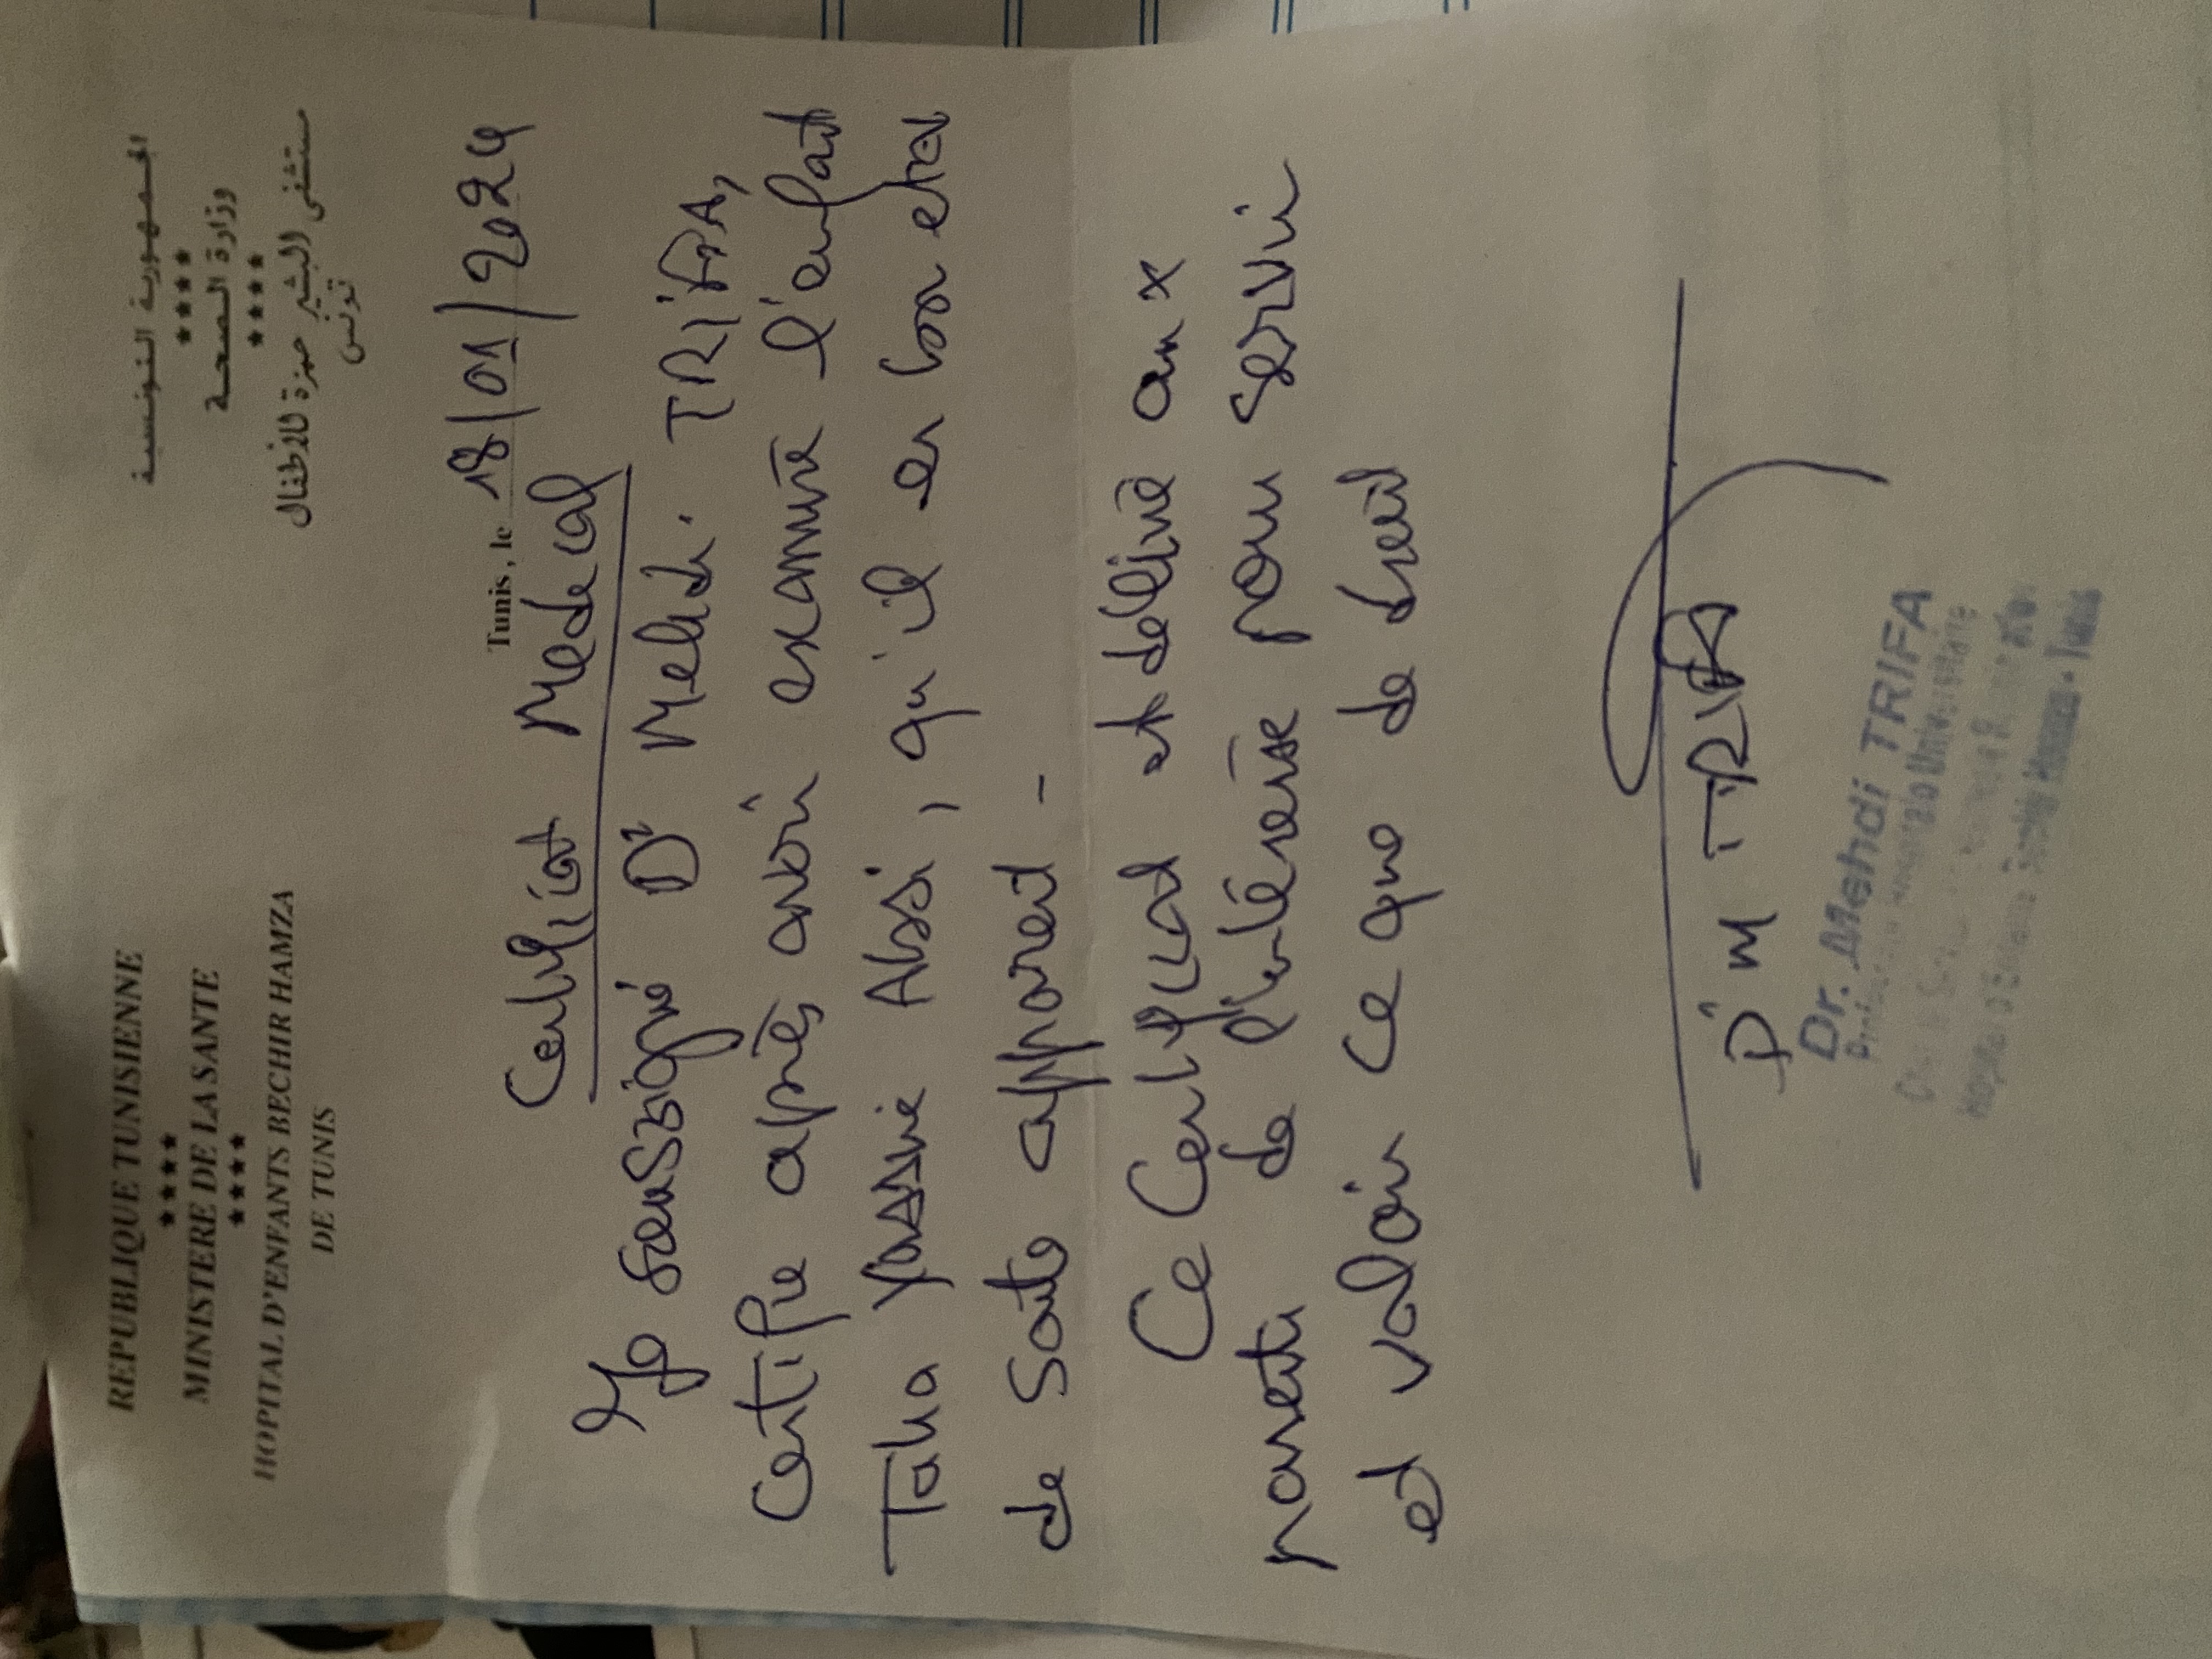 REPUBLIQUE TUNISIENNE
★★★★
MINISTERE DE LA SANTE
★★★★
HOPITAL D'ENFANTS BECHIR HAMZA
DE TUNIS
الجمهورية التونسية
★★★★
وزارة الصحة
★★★★
مستشفى البشير حمزة للأطفال
تونس
Tunis, le 18/01/2024
Certificat Medical
Je soussigné Dr Mehdi. TRIFA,
Certifie après avoir examiné l'enfant
Taha Yassine, qu'il en bon etat
de Sante apparent -
Ce Certificat et délivré aux
parents de pour servir
et valoir ce que de droit
Dr M TRIFA
Dr. Mehdi TRIFA
Hospitalo Universitaire
Tunis